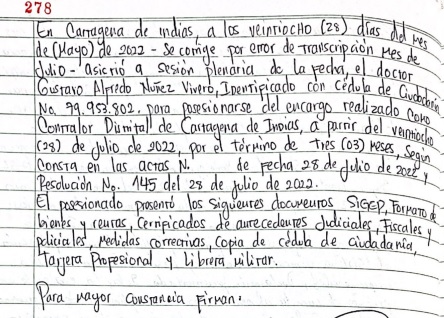 278
En Cartagena de indias, a los veintiocho (28) días del mes
de (Mayo) de 2022 - Se corrige por error de transcripción Mes de
Julio - Asistió a sesión plenaria de la fecha, el doctor
Gustavo Alfredo Nuñez Vivero, Identificado con Cédula de Ciudadanía
No. 99.953.802, para posesionarse del encargo realizado como
Contralor Distrital de Cartagena de Indias, a partir del veintiocho
(28) de julio de 2022, por el término de tres (03) meses, según
consta en las actas N. de fecha 28 de julio de 2022 y
Resolución No. 145 del 28 de julio de 2022.
El posesionado presentó los siguientes documentos SIGEP, Formato de
bienes y rentas, Certificados de antecedentes Judiciales, Fiscales y
policiales, Medidas correctivas, Copia de cédula de ciudadanía,
Tarjeta Profesional y Libreta militar.
Para mayor constancia firman: